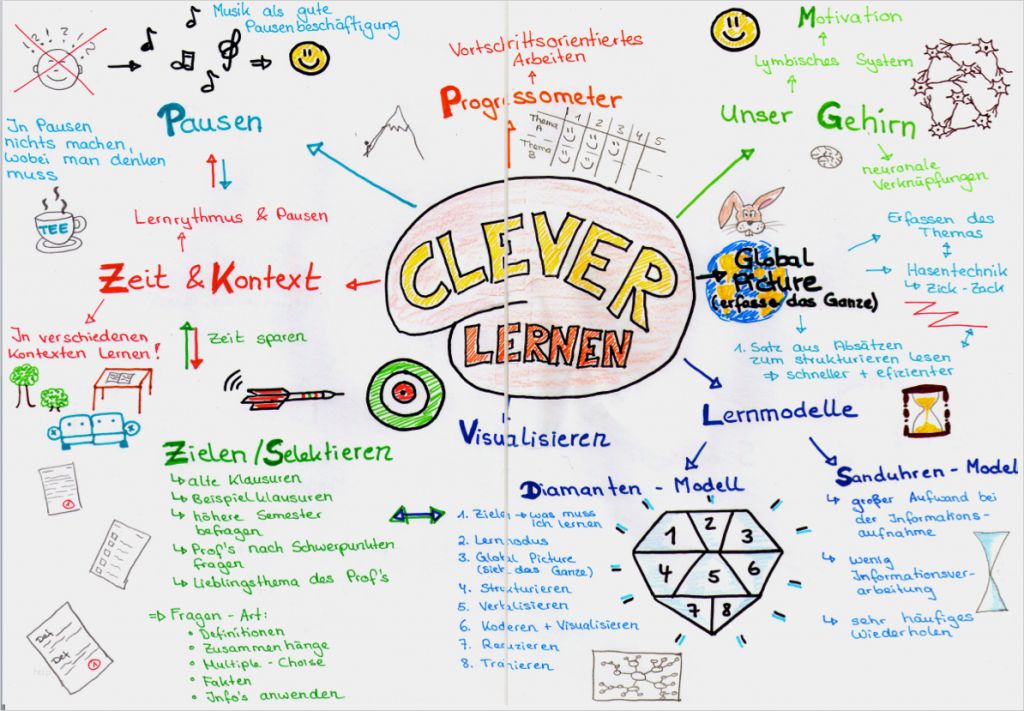 Musik als gute
Pausenbeschäftigung
Pausen
In Pausen
nichts machen,
wobei man denken
muss
TEE
Lernrythmus & Pausen
Zeit & Kontext
In verschiedenen
Kontexten Lernen!
Zeit sparen
Vortschrittsorientiertes
Arbeiten
Progressometer
1 2 3 4 5
Thema
A
Thema
B
Motivation
Lymbisches System
Unser Gehirn
neuronale
Verknüpfungen
CLEVER
LERNEN
Global
Picture
(erfasse das Ganze)
Erfassen des
Themas
Hasentechnik
Zick-Zack
1. Satz aus Absätzen
zum strukturieren lesen
⇒ schneller + efizienter
Zielen/Selektieren
alte Klausuren
Beispielklausuren
höhere Semester
befragen
Prof's nach Schwerpunkten
fragen
Lieblingsthema des Prof's
⇒ Fragen - Art:
• Definitionen
• Zusammenhänge
• Multiple - Choise
• Fakten
• Info's anwenden
Visualisieren
Lernmodelle
Diamanten - Modell
1. Zielen → was muss
ich lernen
2. Lernmodus
3. Global Picture
(sieh das Ganze)
4. Strukturieren
5. Verbalisieren
6. Kodieren + Visualisieren
7. Reduzieren
8. Trainieren
1 2 3
4 5 6
7 8
Sanduhren - Model
großer Aufwand bei
der Informations-
aufnahme
wenig
Informationsver-
arbeitung
sehr häufiges
Wiederholen